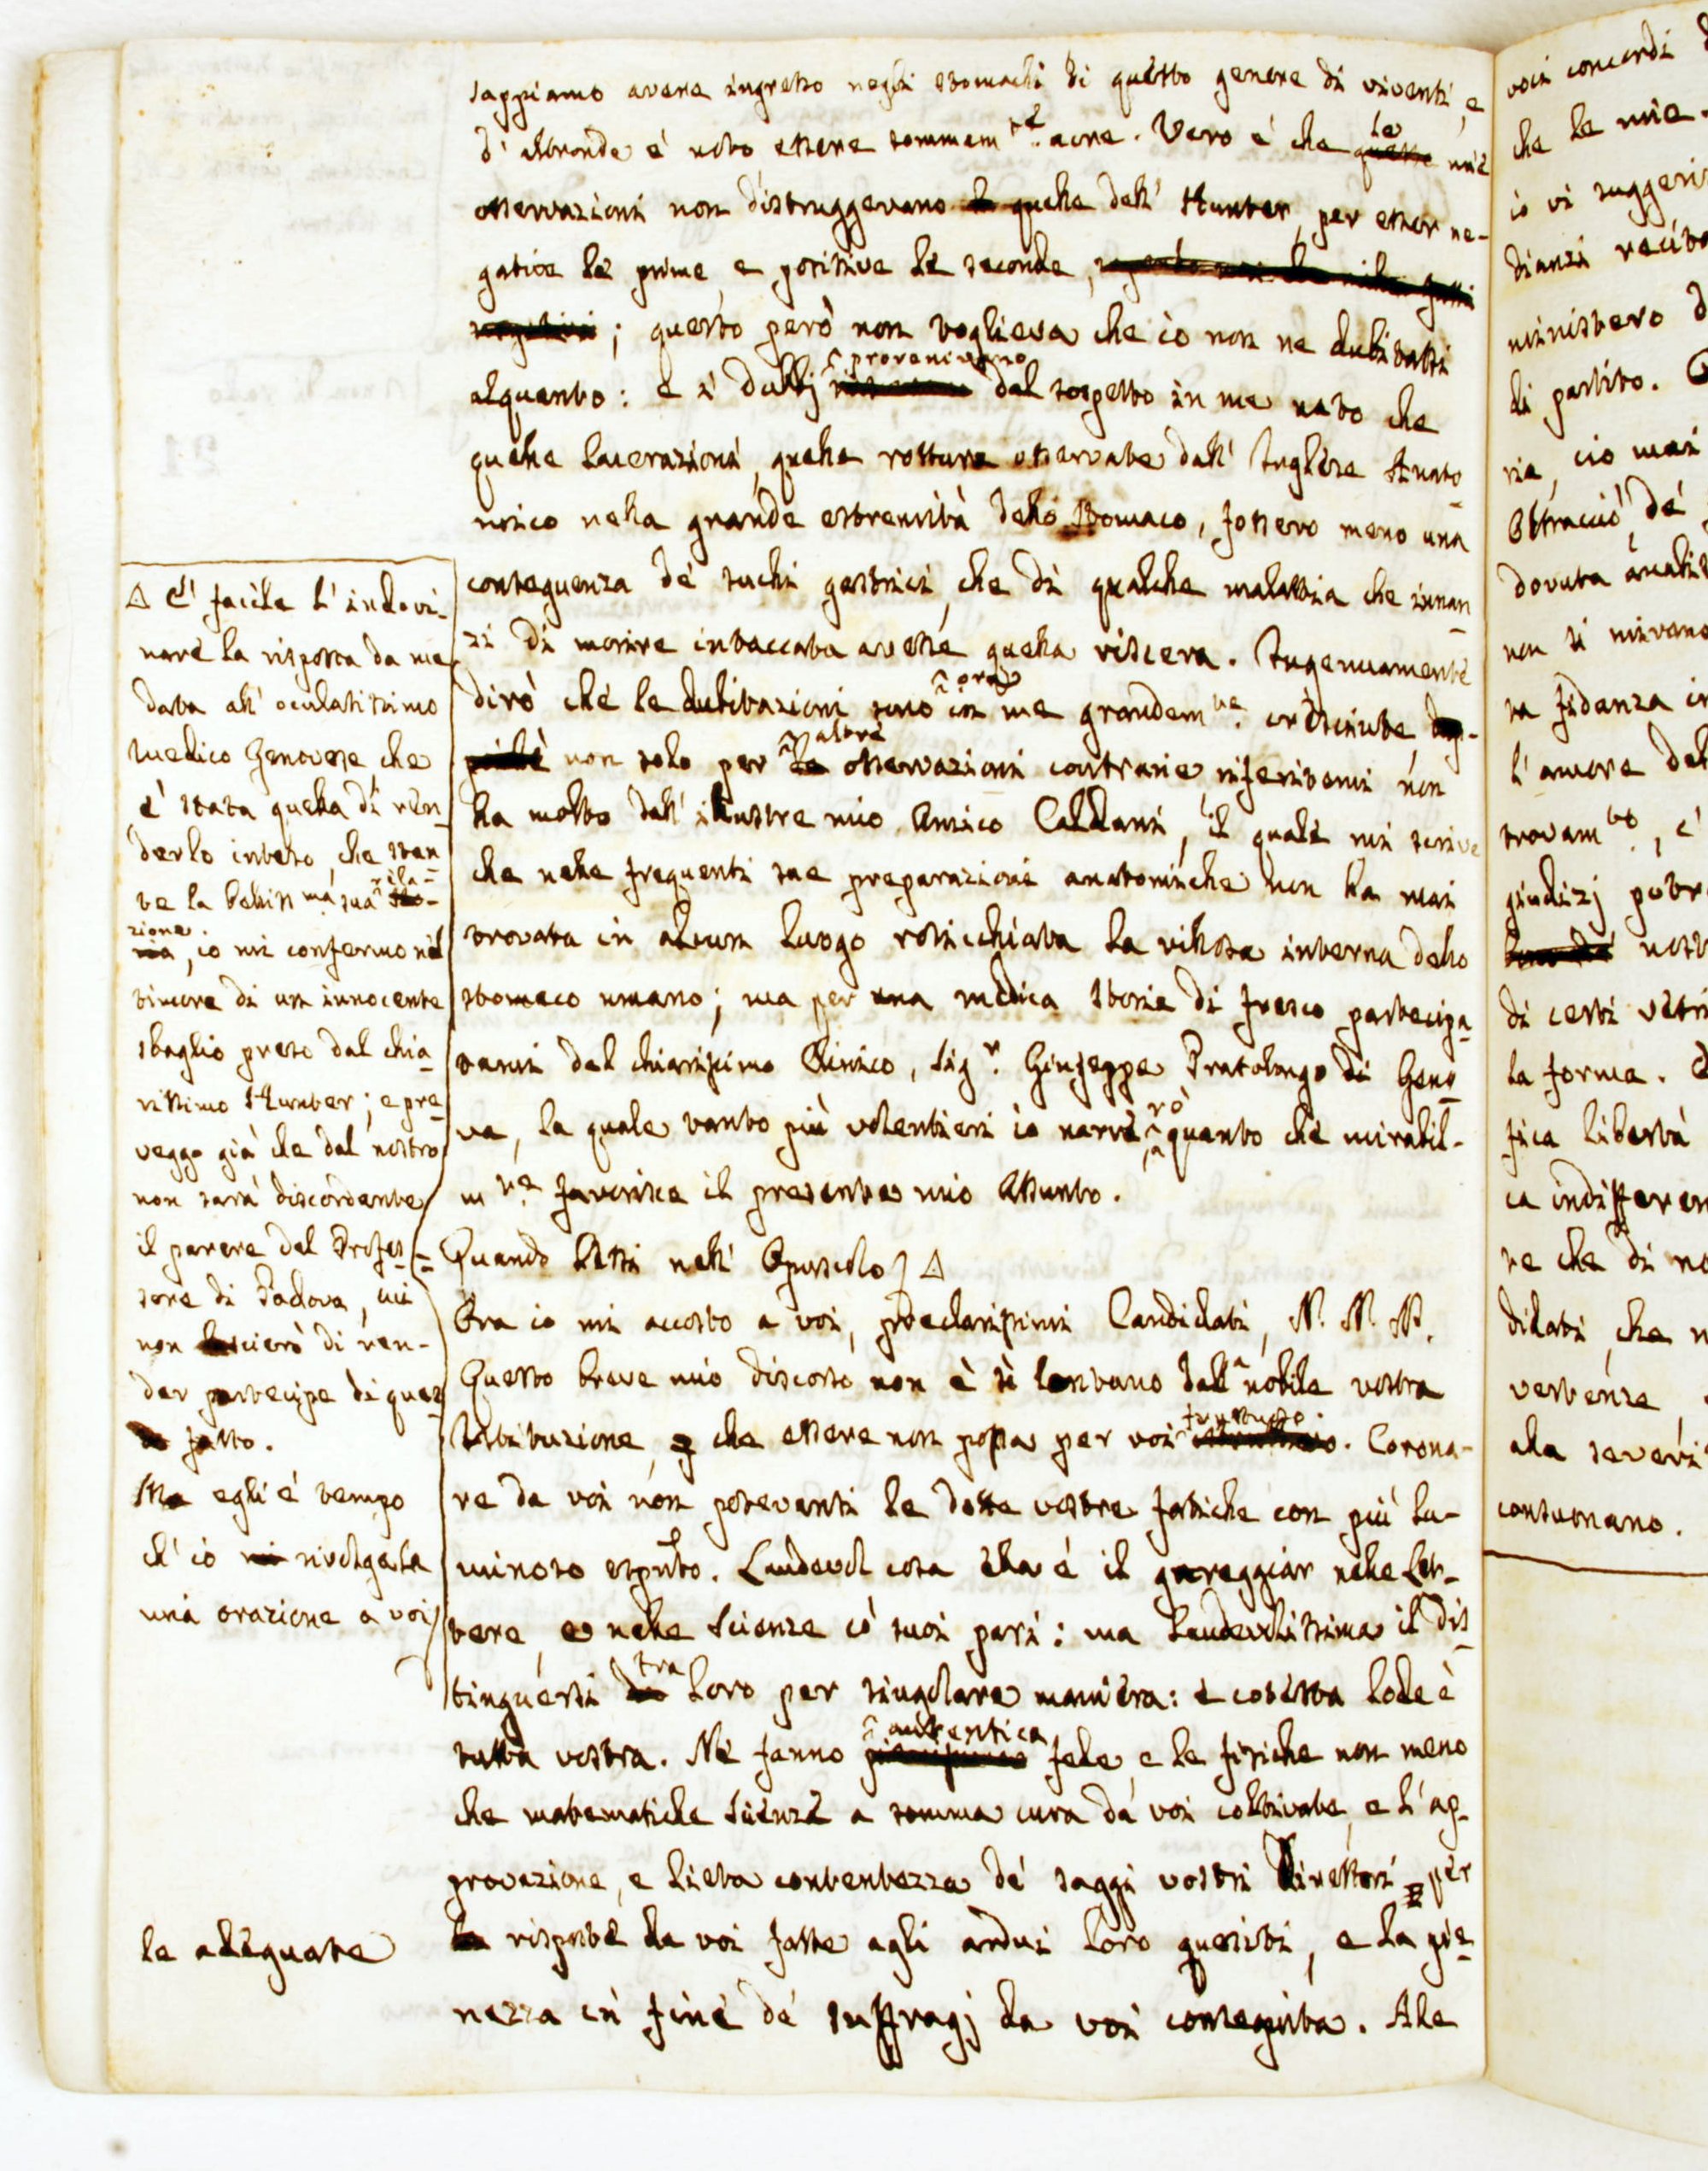 sappiamo avere ingresso negli stomachi di questo genere di viventi, e
d'altronde è noto essere sommam.te acre. Vero è che le queste mie
osservazioni non distruggevano le quelle dell'Hunter, per esser ne-
gative le prime, e positive le seconde,
negativi; questo però non toglieva che io non ne dubitassi
alquanto: e i dubbj provenivano dal sospetto in me nato che
quelle lacerazioni, quelle rotture osservate dall'Inglese Anato-
mico nella grande estremità dello Stomaco, fossero meno una
conseguenza de' succhi gastrici, che di qualche malattia che innan-
zi di morire intaccata avesse quella viscera. Ingenuamente
dirò che le dubitazioni sono ora in me grandem.te cresciute
non solo per le altre osservazioni contrarie riferitemi non
ha molto dall'illustre mio Amico Caldani, il quale mi scrive
che nelle frequenti sue preparazioni anatomiche non ha mai
trovata in alcun luogo rosicchiata la villosa interna dello
stomaco umano; ma per una medica storia di fresco partecipa-
tami dal chiarissimo Clinico, Sig.r Giuseppe Pratolongo di Geno-
va, la quale tanto più volentieri io narrerò quanto che mirabil-
m.te favorisce il presente mio Assunto.
Quando lessi nell'Opuscolo) △
Ora io mi accosto a voi, preclarissimi Candidati, N. N. N.
Questo breve mio discorso non è sì lontano dall nobile vostra
Istituzione, che essere non possa per voi fruttuoso. Corona-
re da voi non potevansi le dotte vostre fatiche con più lu-
minoso esprto. Laudevol cosa ella è il gareggiar nelle Let-
tere, e nelle Scienze co' suoi pari: ma laudevolissima il dis-
tinguersi tra loro per singolare maniera: e cotesta lode è
tutta vostra. Ne fanno autentica fede, e le fisiche non meno
che matematiche scienze a somma cura da voi coltivate, e l'ap-
provazione, e lieta contentezza de' saggi vostri Direttori per
la risposte da voi fatte agli ardui loro quesiti, e la pie-
nezza in fine de' suffragj da voi conseguita. Alle
△ E' facile l'indovi-
nare la risposta da me
data all'oculatissimo
Medico Genovese, che
è stata quella di ren-
derlo inteso, che stan-
te la bellissma sua rila-
zione, io mi confermo nel
timore di un innocente
sbaglio preso dal chia-
rissimo Hunter; e pre-
veggo già che dal nostro
non sarà discordante
il parere del Profes-
sore di Padova, cui
non lascierò di ren-
der partecipe di ques-
to fatto.
Ma egli è tempo
ch'io mi rivolga la
mia orazione a voi)
le adeguate
voci concordi
che le mie.
io vi suggeri
dianzi recita
ministero d
di partito.
ria, cio mai
Abbracciò, de'
dovuta analis
non si mirano
ta fidanza in
l'amore del
trovam.to, e'
giudizj potr
nost
di certi vetri
la forma.
fica libertà
ca indifferen
re che di no
didati, che
vertenze
alla severi
contornano.